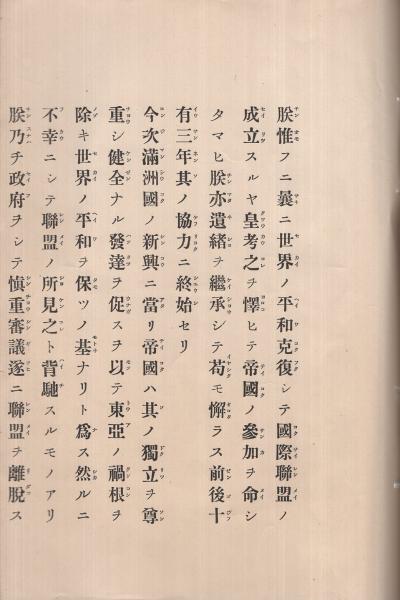 朕惟フニ曩ニ世界ノ平和克復シテ國際聯盟ノ
成立スルヤ皇考之ヲ懌ヒテ帝國ノ參加ヲ命シ
タマヒ朕亦遺緖ヲ繼承シテ苟モ懈ラス前後十
有三年其ノ協力ニ終始セリ
今次滿洲國ノ新興ニ當リ帝國ハ其ノ獨立ヲ尊
重シ健全ナル發達ヲ促スヲ以テ東亞ノ禍根ヲ
除キ世界ノ平和ヲ保ツノ基ナリト爲ス然ルニ
不幸ニシテ聯盟ノ所見之ト背馳スルモノアリ
朕乃チ政府ヲシテ愼重審議遂ニ聯盟ヲ離脫ス